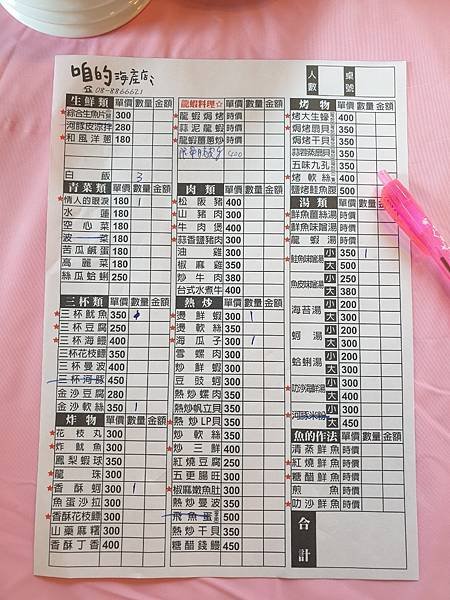 咱的海產店
☎08-8866621
人數 桌號
生鮮類 單價 數量 金額
★綜合生魚片 300
河豚皮涼拌 280
★和風洋蔥 180
白飯 3
青菜類 單價 數量 金額
★情人的眼淚 180 1
水蓮 180
空心菜 180
波菜 180
苦瓜鹹蛋 180
高麗菜 180
絲瓜蛤蜊 250
三杯類 單價 數量 金額
★三杯魷魚 350
★三杯豆腐 250
★三杯海鱺 400
三杯花枝鏢 350
三杯曼波 400
三杯河豚 450
金沙豆腐 280
金沙軟絲 350 1
炸物 單價 數量 金額
★花枝丸 300
★炸魷魚 300
鳳梨蝦球 350
★龍珠 300
★香酥蚵 300 1
魚蛋沙拉 300
★香酥花枝鏢 300
山藥麻糬 300
香酥丁香 400
龍蝦料理☆ 單價 數量 金額
★龍蝦焗烤 時價
★蒜泥龍蝦 時價
★龍蝦薑絲炒 時價
400
肉類 單價 數量 金額
★松阪豬 400
★山豬肉 300
★牛肉煲 400
★蒜香鹽豬肉 300
油雞 300
椒麻雞 350
炒牛肉 380
台式水煮牛 400
熱炒 單價 數量 金額
★燙鮮蝦 300 1
★燙軟絲 350
★海瓜子 300 1
雪螺肉 350
炒鮮蝦 300
豆豉蚵 300
熱炒螺肉 350
熱炒帆立貝 350
★熱炒LP貝 350
炒軟絲 350
★炒三鮮 400
★紅燒豆腐 250
五更腸旺 300
★椒麻嫩魚肚 300
熱炒曼波 350
飛魚蛋 500
熱炒干貝 350
糖醋錢鰻 450
烤物 單價 數量 金額
★烤大生蠔 400
★焗烤扇貝 350
焗烤干貝 350
蒜蓉蒸扇貝 350
五味九孔 350
★烤軟絲 400
鹽烤鮭魚腹 500
湯類 單價 數量 金額
★鮮魚薑絲湯 時價
★鮮魚味噌湯 時價
龍蝦湯 時價
★鮭魚味噌湯 小 350 1
大 500
魚皮味噌湯 小 250
大 380
海苔湯 小 200
大 300
蚵湯 小 200
大 300
蛤蜊湯 小 200
大 300
★叻沙海鮮湯 小 300
大 400
★河豚米粉 小 300
大 450
魚的作法 單價 數量 金額
清蒸鮮魚 時價
★紅燒鮮魚 時價
★糖醋鮮魚 時價
煎魚 時價
★叻沙鮮魚 時價
合計